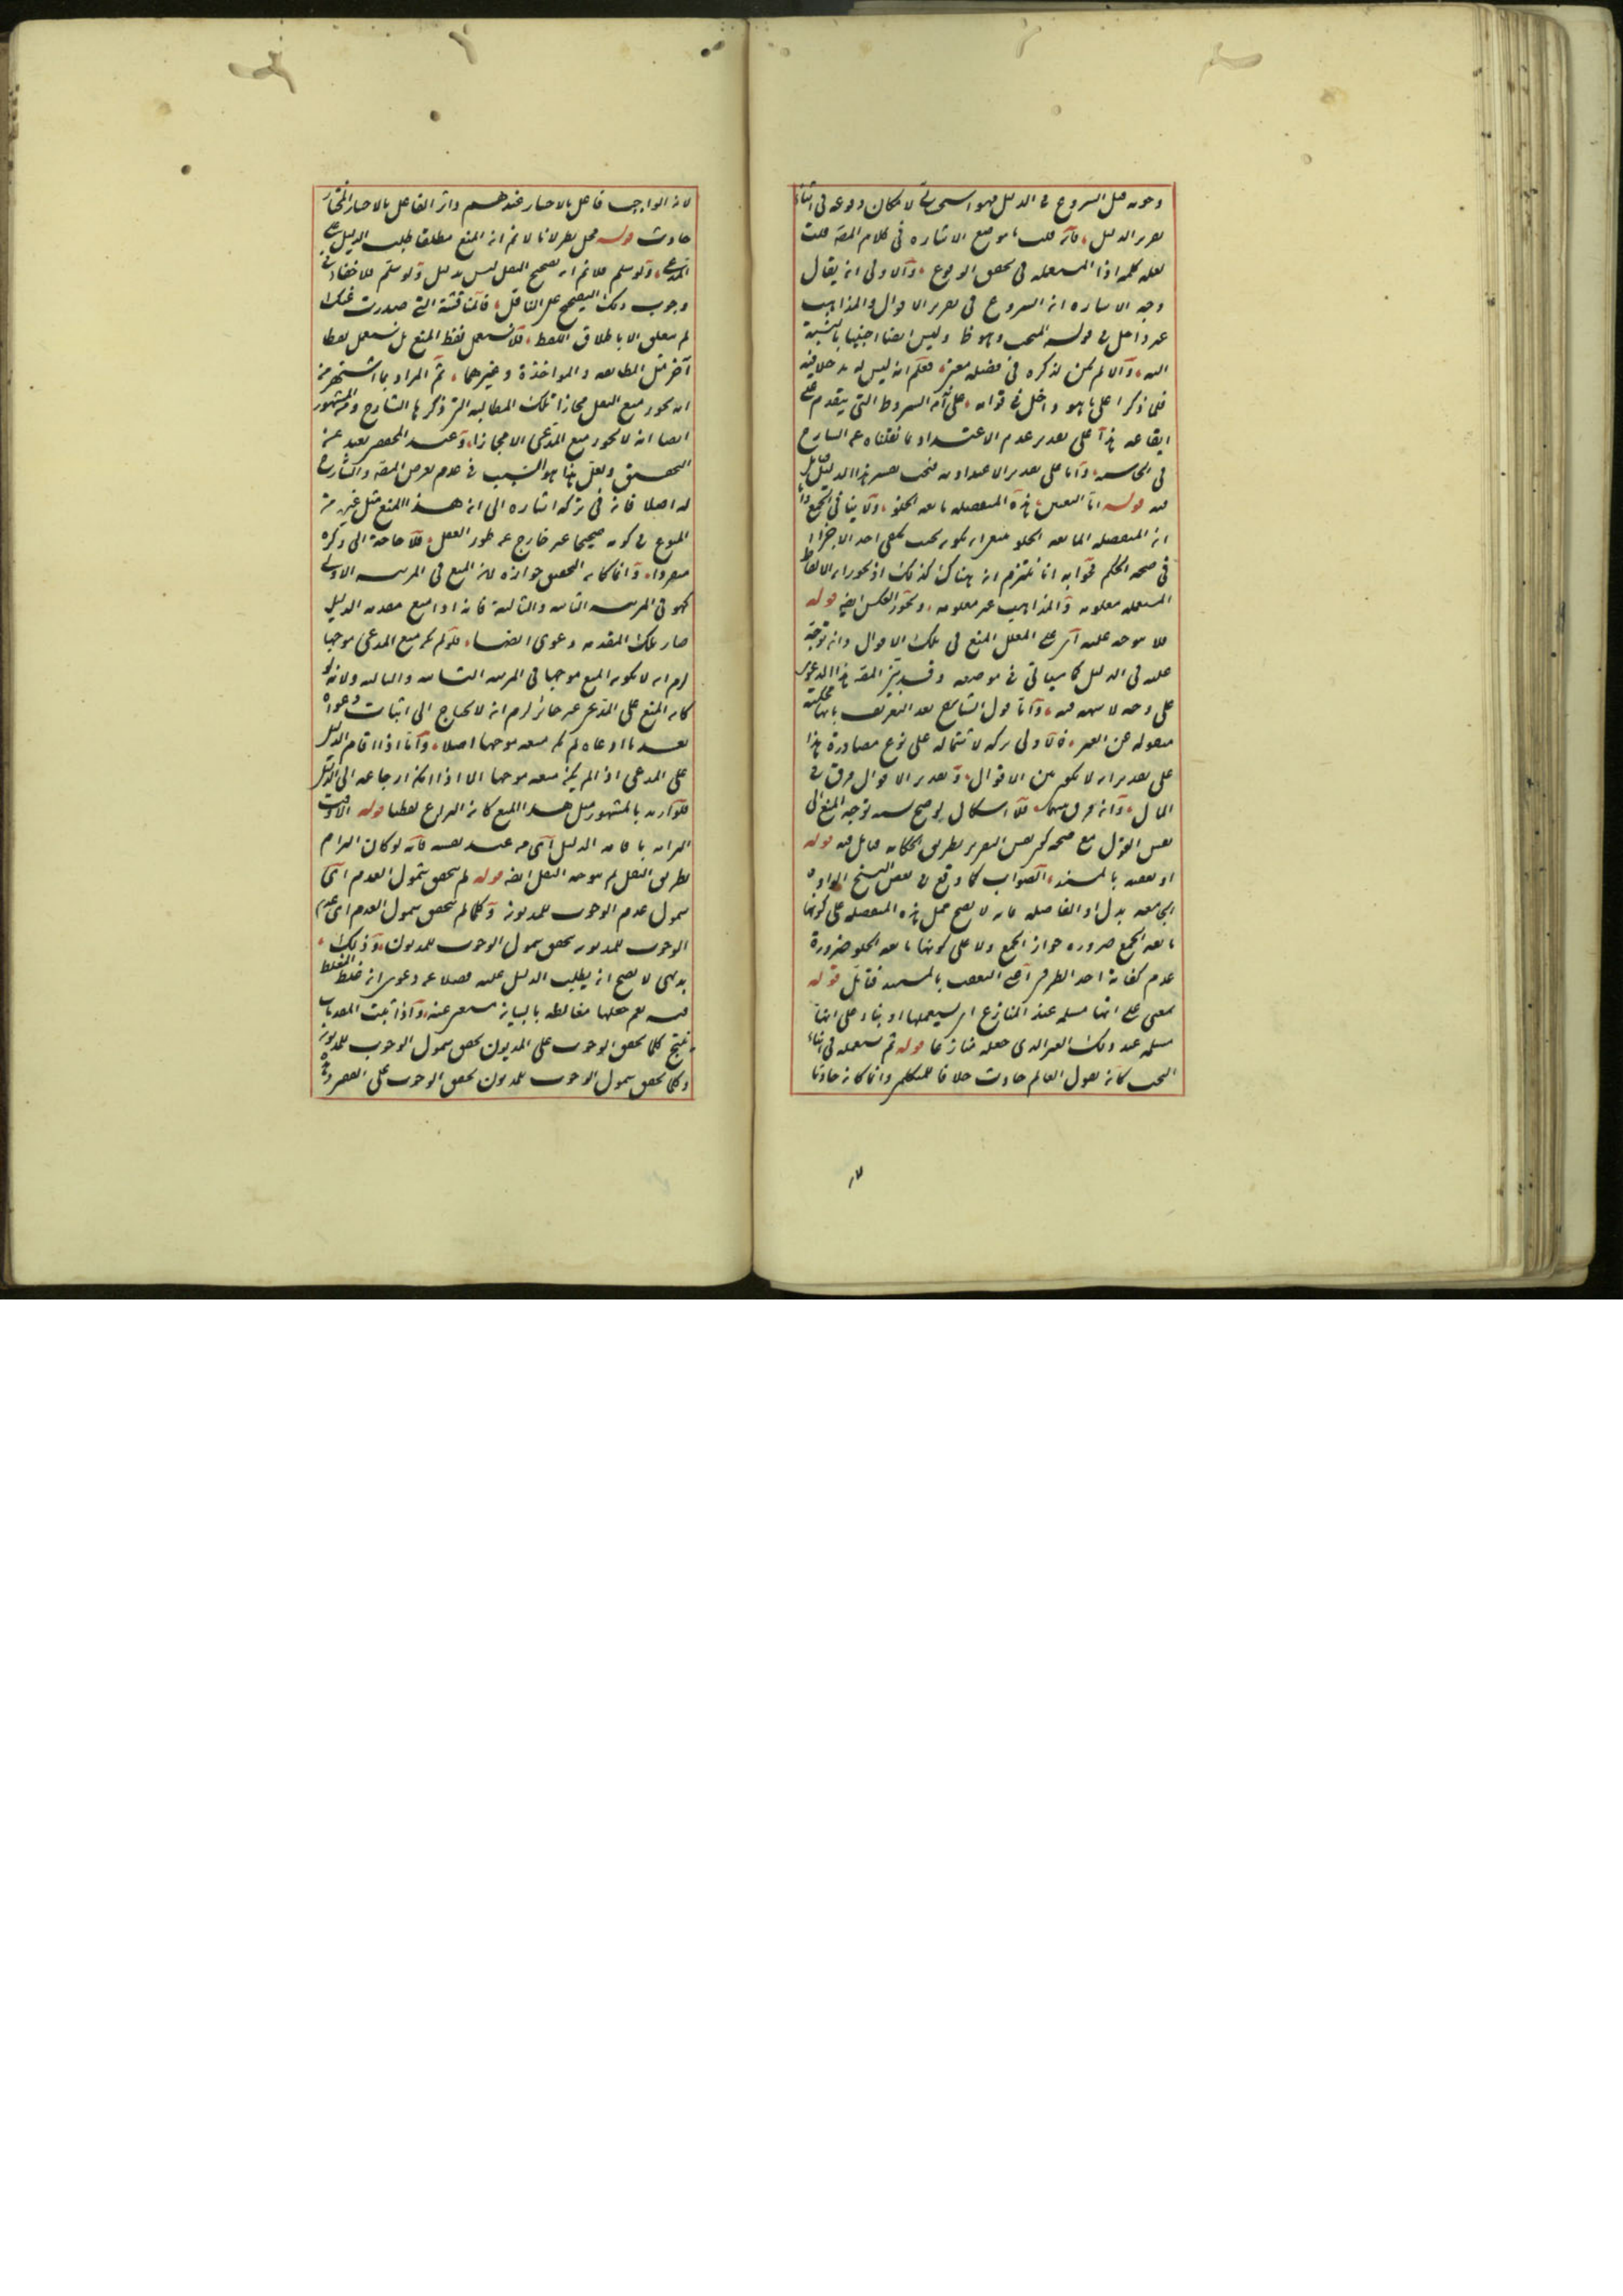 وجوبه قبل الشروع فى الدليل فهو استحسانى لامكان وقوعه فى اثناء
تقرير الدليل فان قلت ما موضع الاشارة فى كلام المص قلت
لعله كلمة اذا المستعملة فى تحقق الوقوع والاولى ان يقال
وجه الاشارة ان الشروع فى تقرير الاقوال والمذاهب
غير داخل فى قوله البحث وهو ظ وليس ايضا اجنبيا بالنسبة
اليه والا لم يكن لذكره فى فصله معنى فعلم انه ليس له بد خلافيه
فلما ذكرا على ما هو داخل فى قوله على انه الشروط التى يتقدم على
ايقاعه هذا على تقدير عدم الاعتداد بما نقلناه عن الشارح
فى الحاشية واما على تقدير الاعتداد به فيجب تفسير هذا الدليل
فيه قوله اما التعيين هذه المنفصلة مانعة الخلو ولا ينافى الجمع
ان المنفصلة المانعة الخلو معتبران يكون بحيث يكفى احد الاجزاء
فى صحة الحكم فجوابه انا نلتزم ان هناك كذلك اذ يجوز ان الالفاظ
المستعملة معلومة والمذاهب غير معلومة ويجوز العكس ايضا قوله
فلا يتوجه عليه اى على المعلل المنع فى تلك الاقوال وانه توجه
عليه فى الدليل كما سياتى فى موضعه وقد بين المص هذا الدعوى
على وجه لا شبهة فيه واما قول الشارح بعد التعريف بانها محكية
منقولة عن الغير فالاولى تركه لاشتماله على نوع مصادرة هذا
على تقدير ان لا يكون من الاقوال وتقدير الاقوال فرق فى
المال وانه فرق بينهما فلا اشكال يوضح سند توجه المنع الى
نفس القول مع صحته كون نفس التقرير بطريق الحكاية فتامل فيه قوله
او نقضه بالسند الصواب كما وقع فى بعض النسخ الواو
الجامعة بدل او الفاصلة فانه لا يصح حمل هذه المنفصلة على كونها
مانعة الجمع ضرورة جواز الجمع ولا على كونها مانعة الخلو ضرورة
عدم كفاية احد الطرفين اعنى التعصب بالسند فتامل قوله
بمعنى على انها مسلمة عند المنازع اى يستعملها او بناء على انها
مسلمة عند ذلك الغير الذى جعله منازعا قوله ثم يستعمله فى اثناء
البحث كانه يقول العالم حادث خلافا للمتكلمين وانما كان حادثا
لان الواجب فاعل بالاختيار عندهم واثر الفاعل بالاختيار المختار
حادث قوله محل نظر لانا لا نم ان المنع مطلقا طلب الدليل على
المدعى ولو سلم فلا نم ان تصحيح النقل ليس بدليل ولو سلم فلا خفاء فى
وجوب ذلك التصحيح على الناقل فالمناقشة التى صدرت عنك
لم يتعلق الا باطلاق اللفظ فلا نستعمل لفظ المنع بل نستعمل لفظا
آخر مثل المطالبة والمؤاخذة وغيرهما ثم المراد بما اشتهر من
انه يجوز منع النقل مجازا تلك المطالبة التى ذكرها الشارح ومن المشهور
ايضا انه لا يجوز منع المدعى الا مجازا وعند المحصر بعيد عن
التحقيق ولعل هذا هو السبب فى عدم تعرض المص والشارح
له اصلا فانه فى تركه اشارة الى ان هذا المنع مثل غيره من
المنوع فى كونه صحيحا غير خارج عن طور العقل فلا حاجة الى ذكره
منفردا وانما كان التحقيق جوازه لان المنع فى المرتبة الاولى
كهو فى المرتبة الثانية والثالثة فانه اذا منع مقدمة الدليل
صار تلك المقدمة دعوى ايضا فلو لم يكن منع المدعى موجها
لزم ان لا يكون المنع موجها فى المرتبة الثانية والثالثة ولانه لو
كان المنع على المدعى غير جائز لزم انه لا يحتاج الى اثبات دعواه
بعد ما ادعاه لم يكن منعه موجها اصلا واما اذا اقام الدليل
على المدعى اذا لم يكن منعه موجها الا اذا امكن ارجاعه الى الدليل
فلو اريد بالمشهور مثل هذا المنع كان النزاع لفظيا قوله الا وقت
التزامه باقامة الدليل اى من عند نفسه فانه لو كان التزام
بطريق النقل لم يتوجه النقل ايضا قوله لم يتحقق شمول العدم اى
شمول عدم الوجوب للمديون وكلما لم يتحقق شمول العدم اى عدم
الوجوب للمديون يتحقق شمول الوجوب للمديون وذلك
بديهى لا يصح ان يطلب الدليل عليه فضلا عن دعوى انه غلط المغلط
فيه نعم جعلها مغالطة بالبيان مستغنى عنه واذا ثبت المقدمات
ينتج كلما تحقق الوجوب على المديون تحقق شمول الوجوب للمديون
وكلما تحقق شمول الوجوب للمديون تحقق الوجوب على الفقير